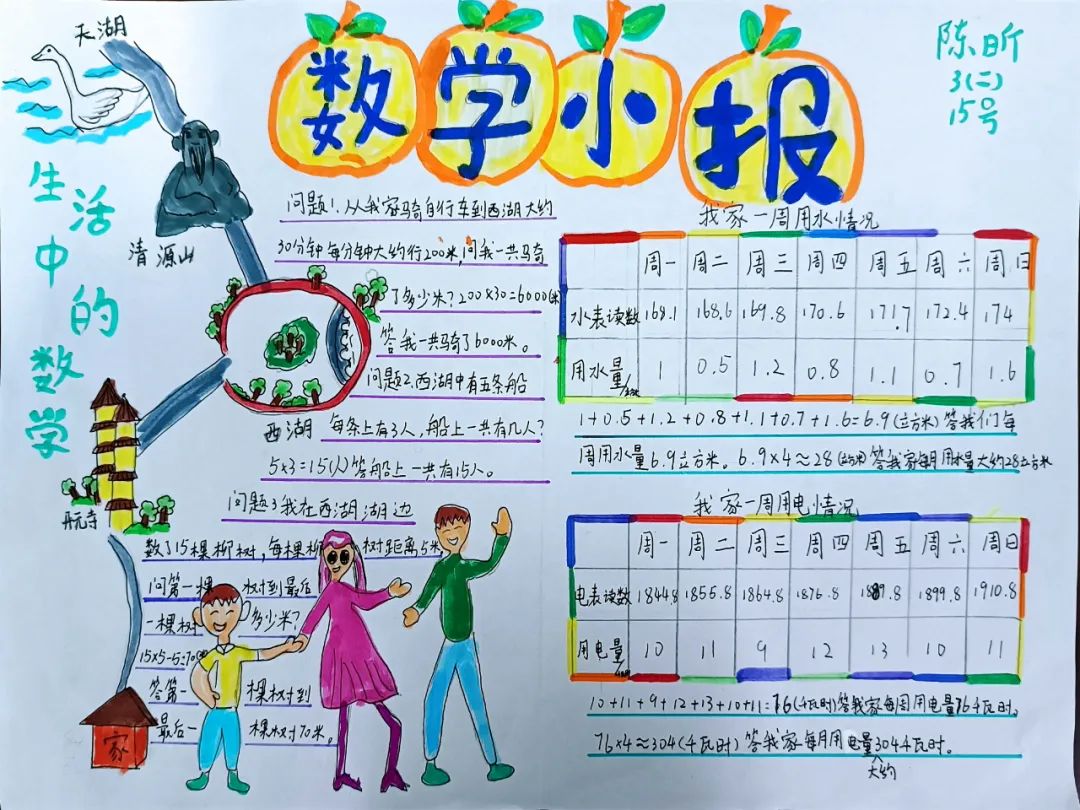 数学小报
陈昕
3(二)
15号
天湖
清源山
西湖
开元寺
家
生活中的数学
问题1.从我家骑自行车到西湖大约
30分钟每分钟大约行200米,问我一共骑
了多少米?200×30=6000(米)
答我一共骑了6000米。
问题2.西湖中有五条船
每条上有3人,船上一共有几人?
5×3=15(人)答船上一共有15人。
问题3我在西湖湖边
数了15棵柳树,每棵柳树距离5米
问第一棵树到最后
一棵树多少米?
15×5-5=70(米)
答第一棵树到
最后一棵树70米。
我家一周用水情况
周一 周二 周三 周四 周五 周六 周日
水表读数 168.1 168.6 169.8 170.6 171.7 172.4 174
用水量 1 0.5 1.2 0.8 1.1 0.7 1.6
1+0.5+1.2+0.8+1.1+0.7+1.6=6.9(立方米)答我们每
周用水量6.9立方米。6.9×4≈28(立方米)答我家每月用水量大约28立方米
我家一周用电情况
周一 周二 周三 周四 周五 周六 周日
电表读数 1844.8 1855.8 1864.8 1876.8 1889.8 1899.8 1910.8
用电量 10 11 9 12 13 10 11
10+11+9+12+13+10+11=76(千瓦时)答我家每周用电量76千瓦时。
76×4≈304(千瓦时)答我家每月用电量304千瓦时。
大约